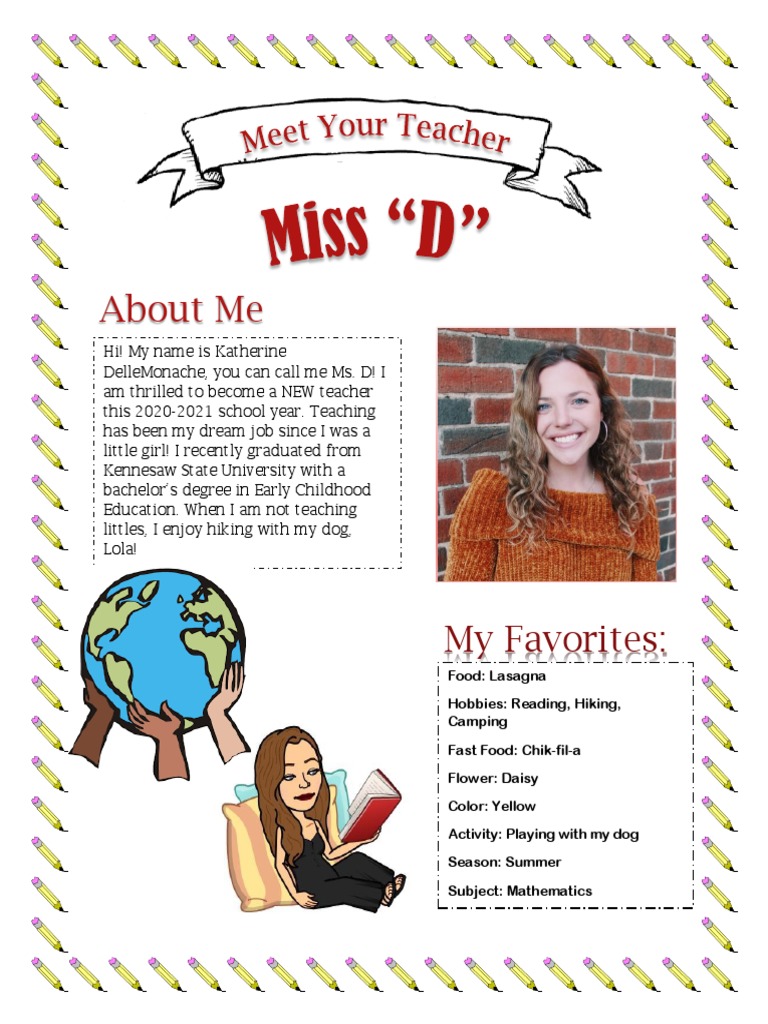 Meet Your Teacher
Miss “D”
About Me
Hi! My name is Katherine
DelleMonache, you can call me Ms. D! I
am thrilled to become a NEW teacher
this 2020-2021 school year. Teaching
has been my dream job since I was a
little girl! I recently graduated from
Kennesaw State University with a
bachelor’s degree in Early Childhood
Education. When I am not teaching
littles, I enjoy hiking with my dog,
Lola!
My Favorites:
Food: Lasagna
Hobbies: Reading, Hiking,
Camping
Fast Food: Chik-fil-a
Flower: Daisy
Color: Yellow
Activity: Playing with my dog
Season: Summer
Subject: Mathematics